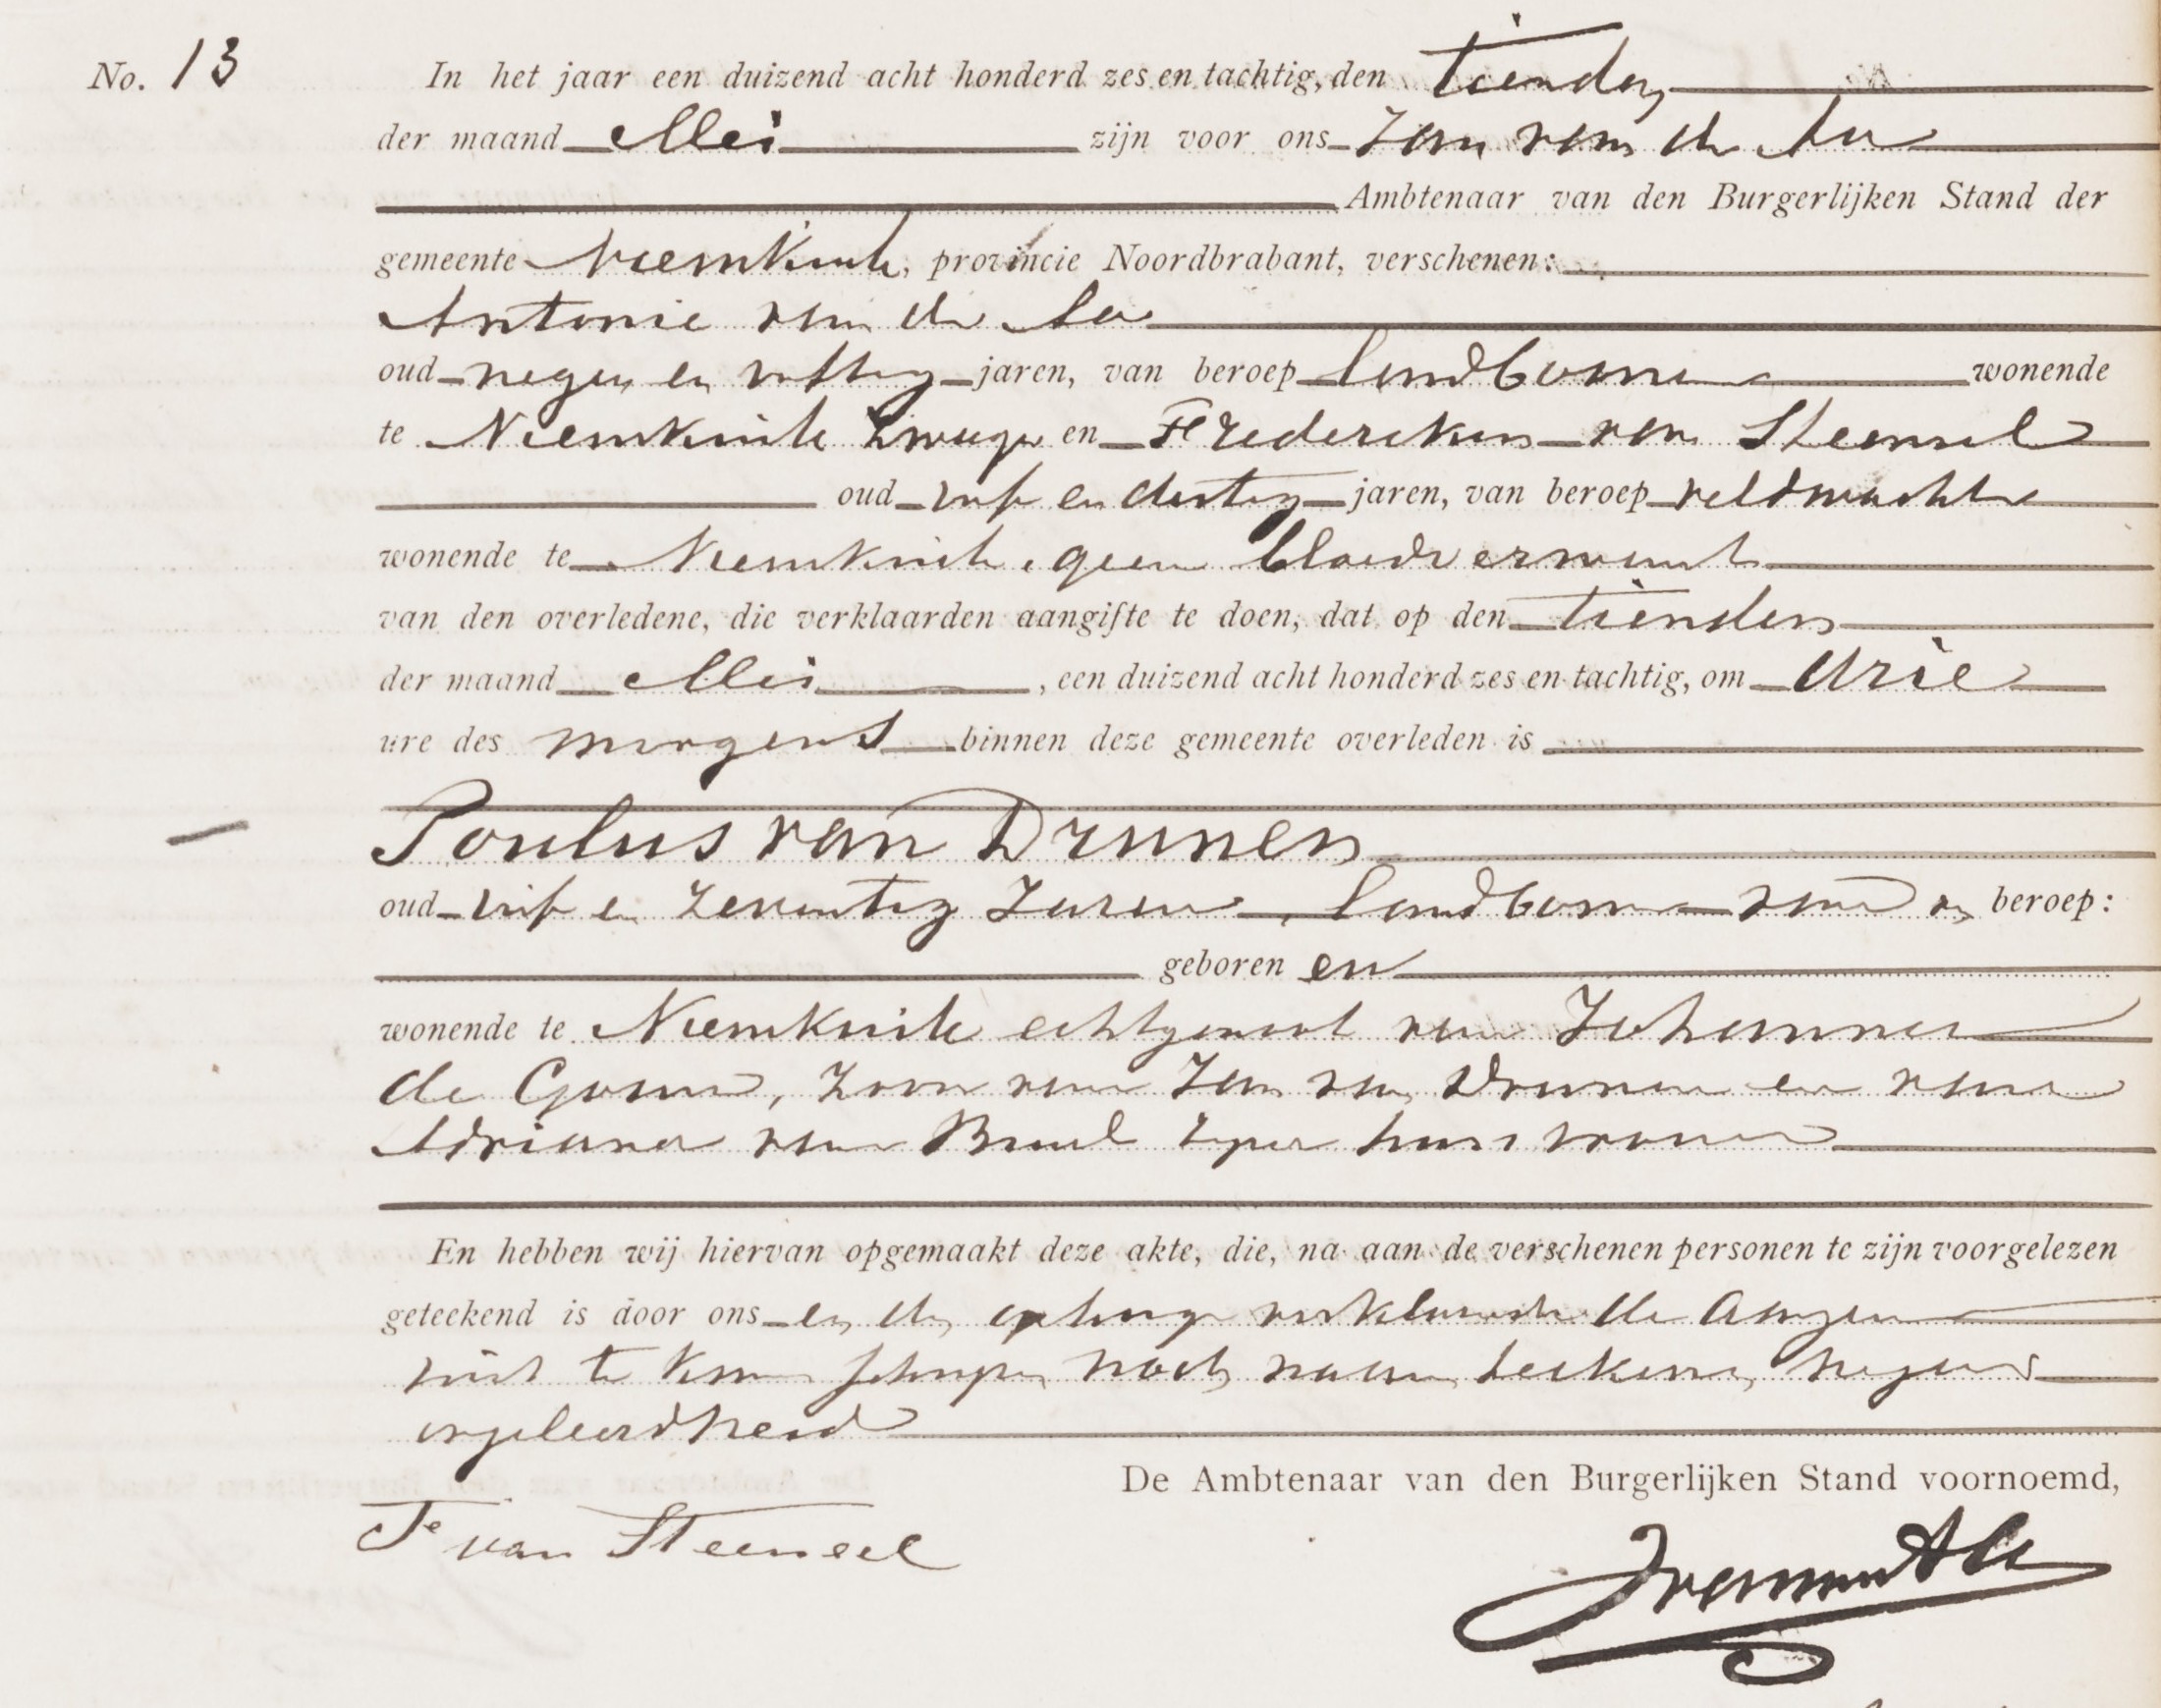 No. 13 In het jaar een duizend acht honderd zes en tachtig, den tienden
der maand Mei zijn voor ons Jan van der Aa
Ambtenaar van den Burgerlijken Stand der
gemeente Nieuwkuik, provincie Noordbrabant, verschenen:
Antonie van der Aa
oud negen en vijftig jaren, van beroep landbouwer wonende
te Nieuwkuik zwager en Frederekus van Steensel
oud vijf en dertig jaren, van beroep veldwachter
wonende te Nieuwkuik, geen bloedverwant
van den overledene, die verklaarden aangifte te doen, dat op den tienden
der maand Mei, een duizend acht honderd zes en tachtig, om drie
ure des morgens binnen deze gemeente overleden is
Poulus van Drunen
oud vijf en zeventig Jaren, landbouwer van beroep:
geboren en
wonende te Nieuwkuik echtgenoot van Johanna
de Gouw, zoon van Jan van Drunen en van
Adriana van Buul zijne huisvrouw
En hebben wij hiervan opgemaakt deze akte, die, na aan de verschenen personen te zijn voorgelezen
geteekend is door ons en den verklaarde de
niet te kunnen schrijven noch naam teekenen wegens
ongeleerdheid
De Ambtenaar van den Burgerlijken Stand voornoemd,
Fe van Steensel